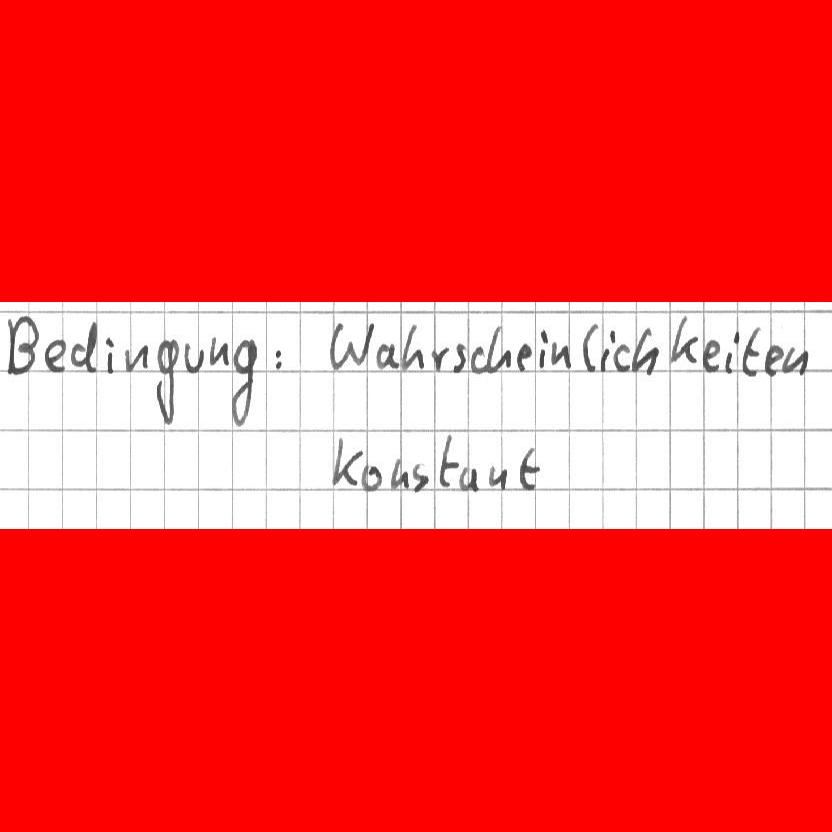 Bedingung: Wahrscheinlichkeiten
konstant